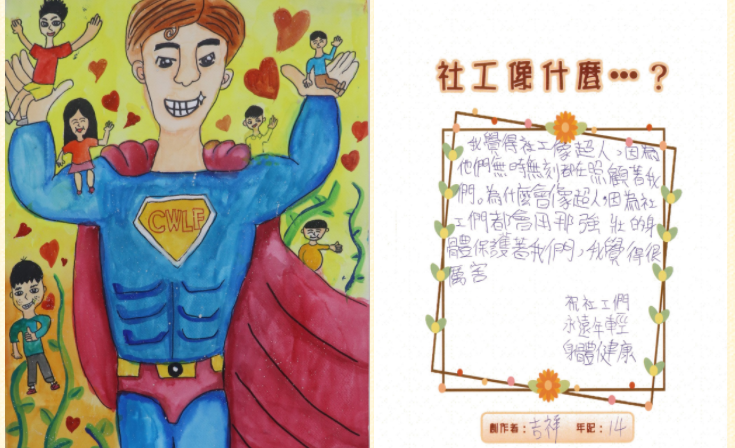 CWLF
社工像什麼…?
我覺得社工像超人,因為
他們無時無刻都在照顧著我
們。為什麼會像超人,因為社
工們都會用那強壯的身
體保護著我們,我覺得很
厲害
祝社工們
永遠年輕
身體健康
創作者:吉祥 年紀:14